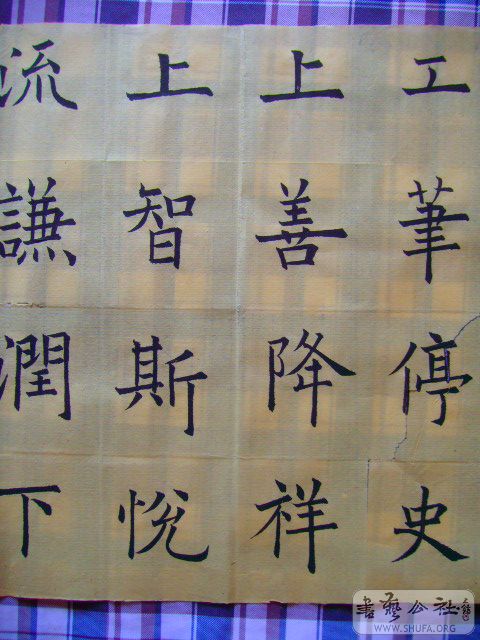 工筆停史
上善降祥
上智斯悅
流謙潤下
書藝公社
WWW.SHUFA.ORG